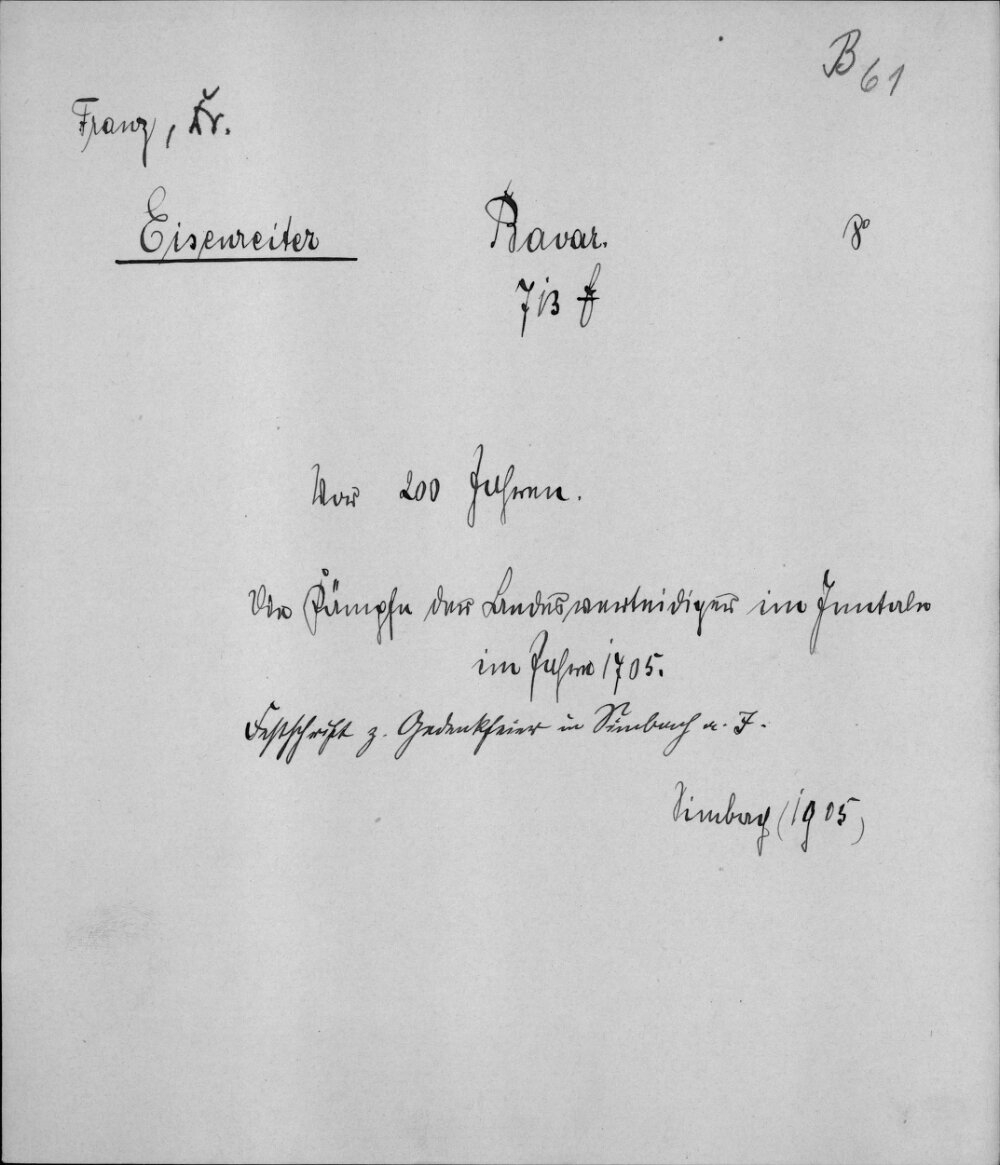 B 61
Franz, Xv.
Eisenreiter Bavar. 8°
713 f
Vor 200 Jahren.
Die Kämpfe der Landesverteidiger im Inntale
im Jahre 1705.
Festschrift z. Gedenkfeier in Simbach a. I.
Simbach (1905)